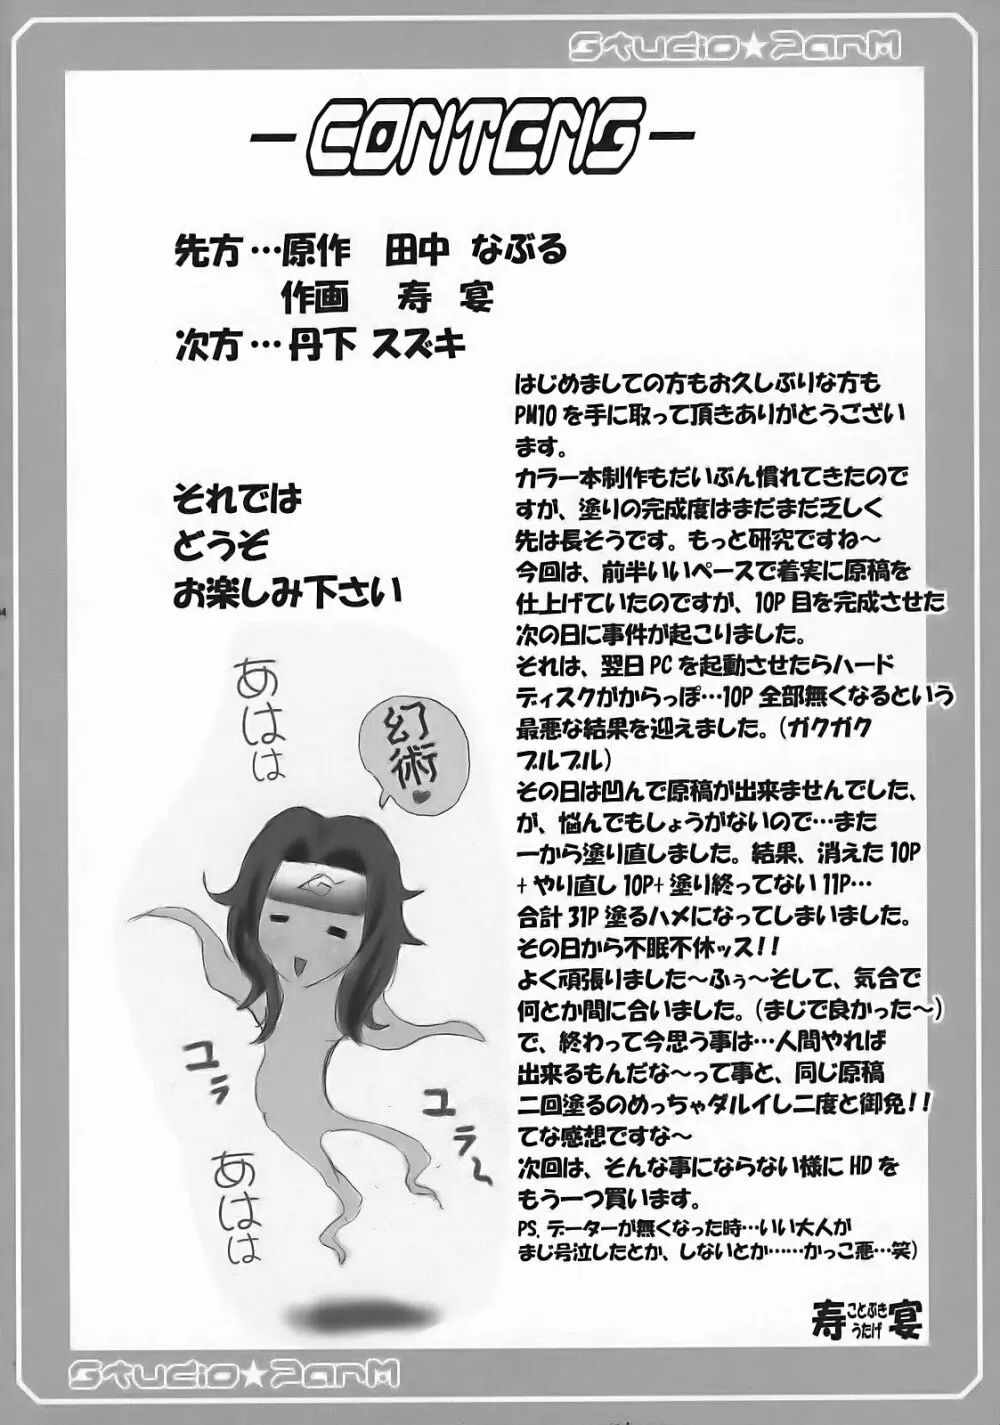 Studio★ParM
-CONTENS-
先方…原作 田中 なぶる
作画 寿 宴
次方…丹下 スズキ
はじめましての方もお久しぶりな方も
PM10を手に取って頂きありがとうござい
ます。
カラー本制作もだいぶん慣れてきたので
すが、塗りの完成度はまだまだ乏しく
先は長そうです。もっと研究ですね～
今回は、前半いいペースで着実に原稿を
仕上げていたのですが、10P目を完成させた
次の日に事件が起こりました。
それは、翌日PCを起動させたらハード
ディスクがからっぽ…10P全部無くなるという
最悪な結果を迎えました。(ガクガク
ブルブル)
その日は凹んで原稿が出来ませんでした、
が、悩んでもしょうがないので…また
一から塗り直しました。結果、消えた10P
+やり直し10P+塗り終ってない11P…
合計31P塗るハメになってしまいました。
その日から不眠不休ッス!!
よく頑張りました～ふぅ～そして、気合で
何とか間に合いました。(まじで良かった～)
で、終わって今思う事は…人間やれば
出来るもんだな～って事と、同じ原稿
二回塗るのめっちゃダルイし二度と御免!!
てな感想ですな～
次回は、そんな事にならない様にHDを
もう一つ買います。
PS.データーが無くなった時…いい大人が
まじ号泣したとか、しないとか……かっこ悪…笑)
寿 ことぶき うたげ 宴
それでは
どうぞ
お楽しみ下さい
あはは
幻術♥
ユラ
ユラ～
あはは
Studio★ParM